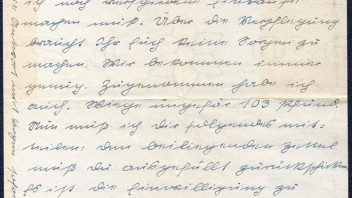 ich noch verschiedene Einkäufe
machen muß. Über die Verpflegung
braucht Ihr Euch keine Sorgen zu
machen. Wir bekommen immer
genug. Zugenommen habe ich
auch. Wiege ungefähr 103 Pfund.
Nun muß ich dir folgendes mit-
teilen: den beiliegenden Zettel
mußt du ausgefüllt zurückschicken
Es ist die Einwilligung zu